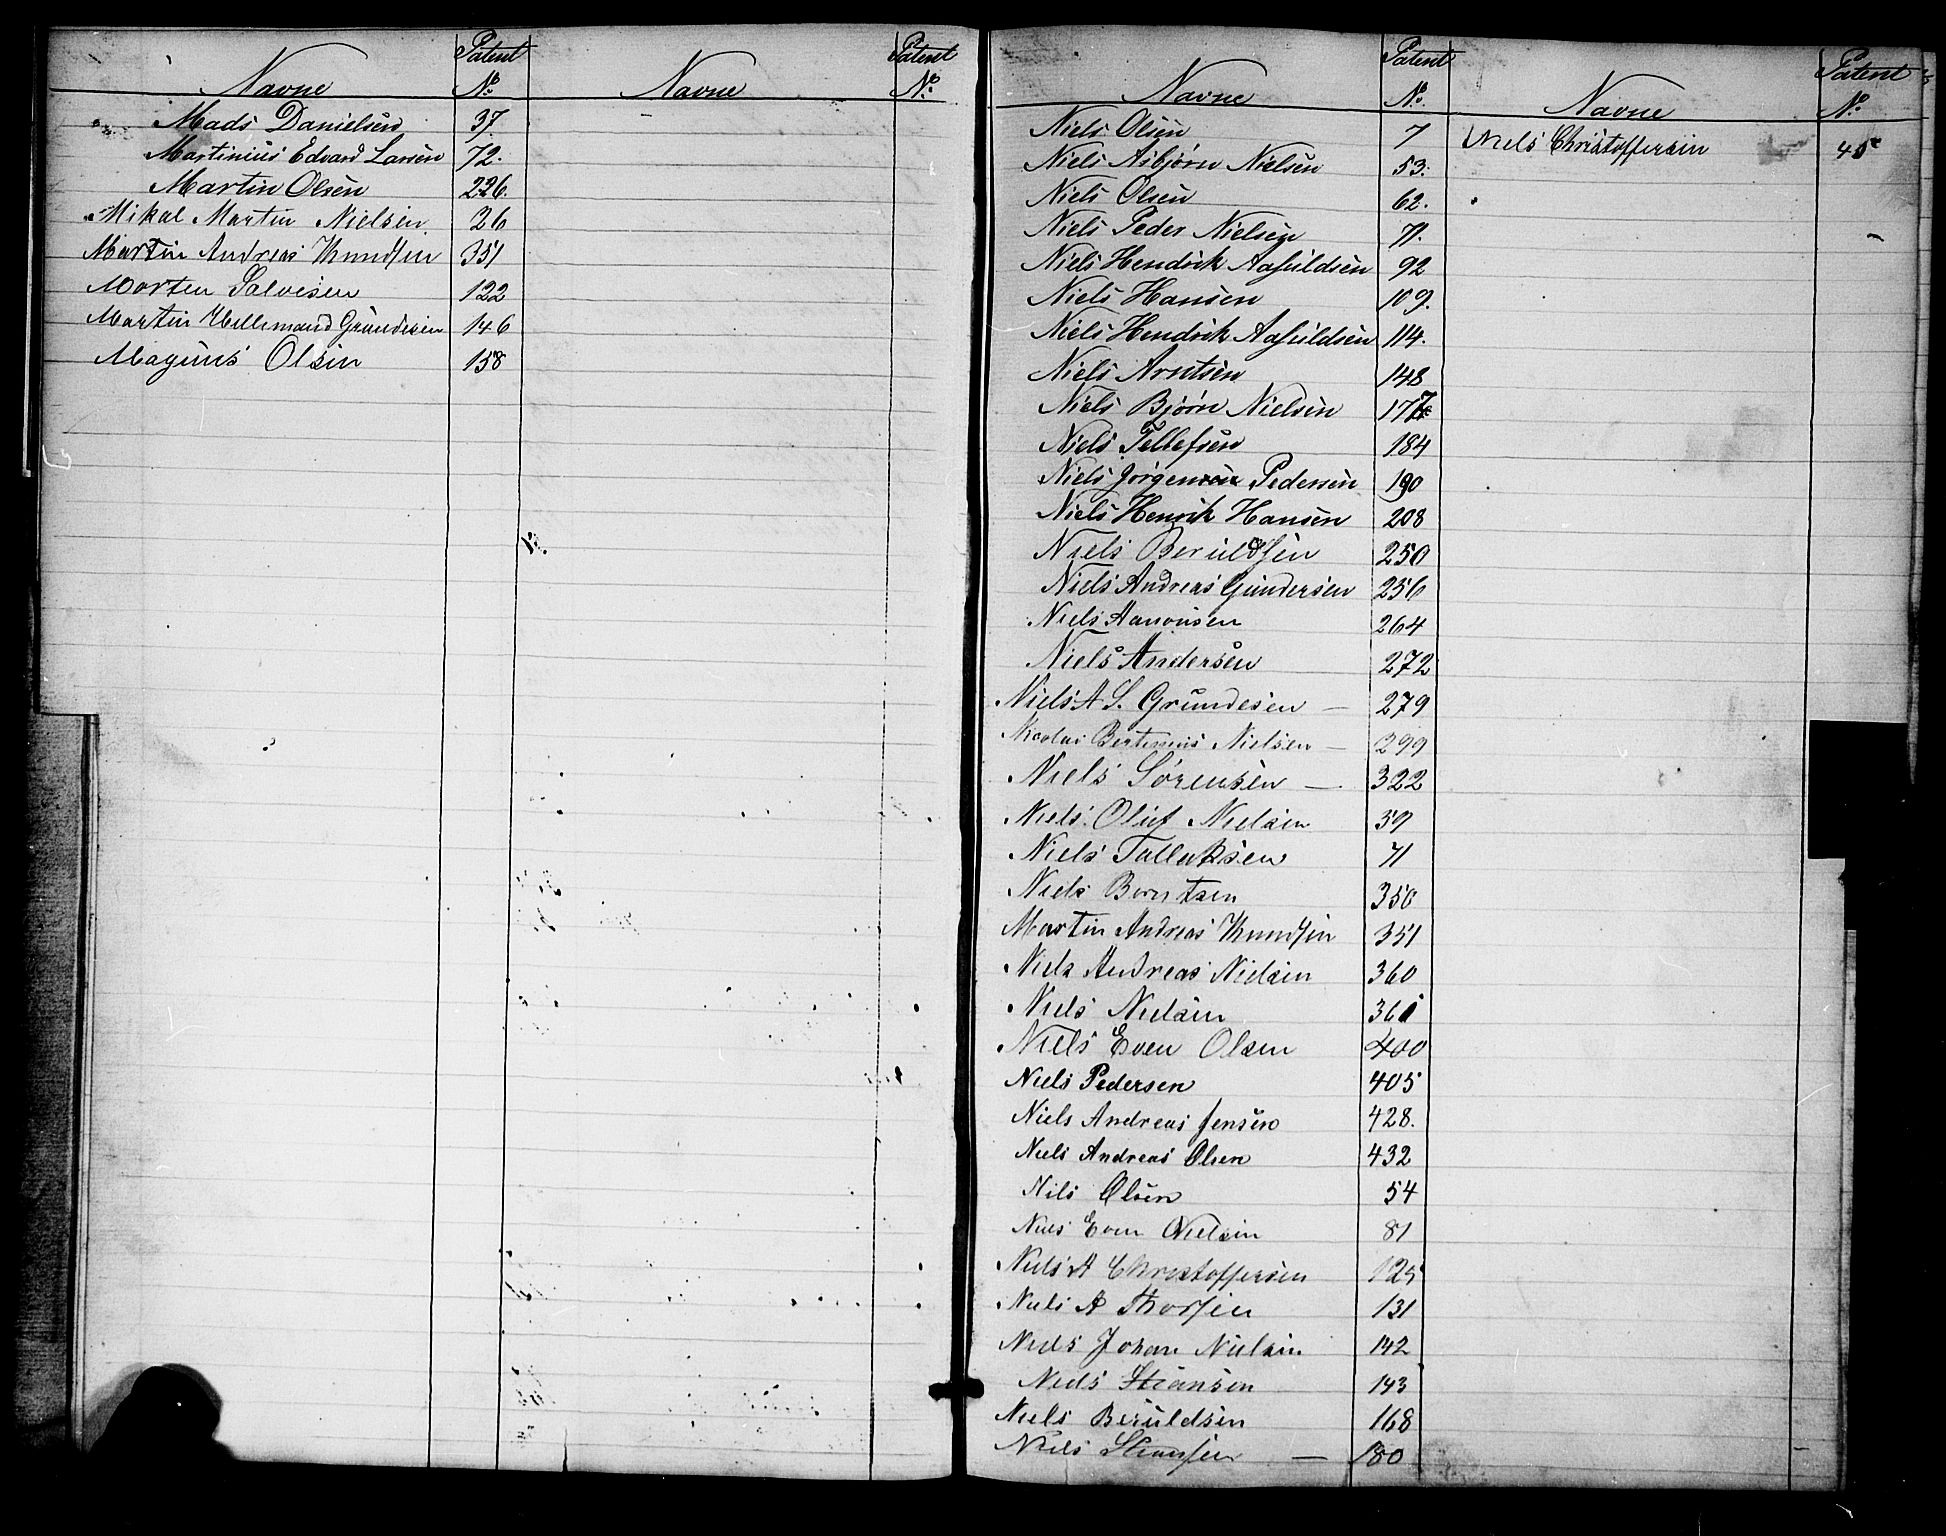 Navne Patent No. Navne Patent No.
Mads Danielsen 37.
Martinius Edvard Larsen 72.
Martin Olsen 226.
Mikal Martin Nielsen. 26
Martin Andreas Knudsen 351
Morten Salvesen 122
Martin Hellemand Grundesen 146
Magnus Olsen 158
Navne Patent No. Navne Patent No.
Niels Olsen 7
Niels Asbjørn Nielsen 53.
Niels Olsen 62.
Niels Peder Nielsen 71.
Niels Hendrik Aasuldsen 92
Niels Hansen 109.
Niels Hendrik Aasuldsen 114.
Niels Arntsen 148
Niels Bjørn Nielsen 177
Niels Tellefsen 184
Niels Jørgensen Pedersen 190
Niels Henrik Hansen 208
Niels Beruldsen 250
Niels Andreas Gundersen 256
Niels Aanonsen 264
Niels Andersen 272
Niels A S. Grundesen — 279
Nicolai Bertinius Nielsen — 299
Niels Sørensen — 322
Niels Oluf Nielsen 39
Niels Tallaksen 71
Niels Berntsen 350
Martin Andreas Knudsen 351
Niels Andreas Nielsen 360
Niels Nielsen 361
Niels Even Olsen 400
Niels Pedersen 405
Niels Andreas Jensen 428.
Niels Andreas Olsen 432
Nils Olsen 54
Niels Even Nielsen 81
Niels A Christoffersen 125
Niels A Thorsen 131
Niels Johan Nielsen 142
Niels Stiansen 143
Niels Beruldsen 168
Niels Stiansen — 180
Niels Christoffersen 45